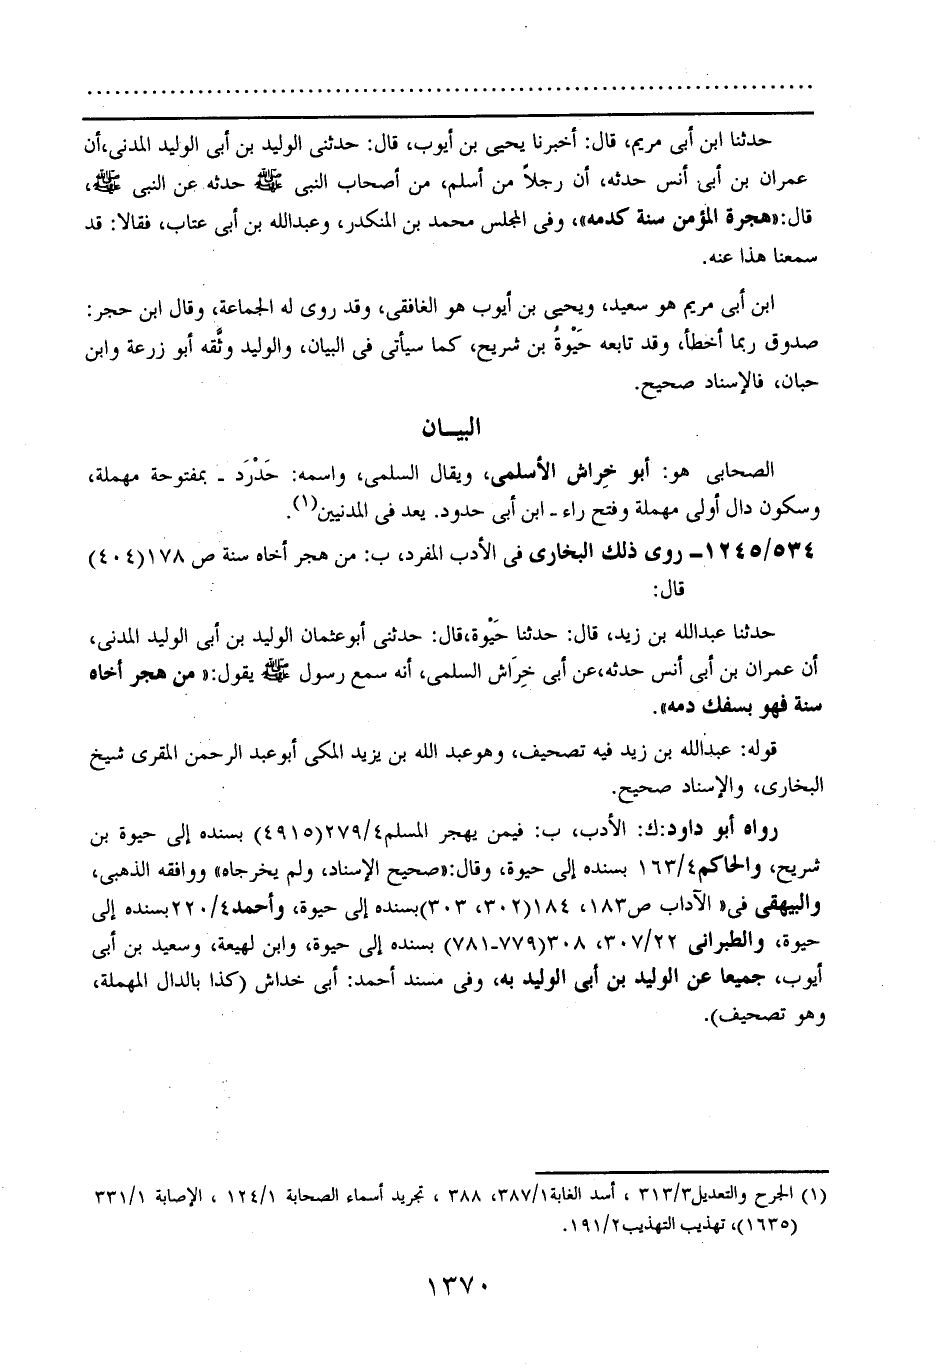 حدثنا ابن أبى مريم، قال: أخبرنا يحيى بن أيوب، قال: حدثنى الوليد بن أبى الوليد المدنى،أن
عمران بن أبى أنس حدثه، أن رجلاً من أسلم، من أصحاب النبى ﷺ حدثه عن النبى ﷺ،
قال:«هجرة المؤمن سنة كدمه»، وفى المجلس محمد بن المنكدر، وعبدالله بن أبى عتاب، فقالا: قد
سمعنا هذا عنه.
ابن أبى مريم هو سعيد، ويحيى بن أيوب هو الغافقى، وقد روى له الجماعة، وقال ابن حجر:
صدوق ربما أخطأ، وقد تابعه حَيْوةُ بن شريح، كما سيأتى فى البيان، والوليد وثَّقه أبو زرعة وابن
حبان، فالإسناد صحيح.
البيـــان
الصحابى هو: أبو خِراش الأسلمى، ويقال السلمى، واسمه: حَدْرَد ـ بمفتوحة مهملة،
وسكون دال أولى مهملة وفتح راء ـ ابن أبى حدود. يعد فى المدنيين(١).
١٢٤٥/٥٣٤ـ روى ذلك البخارى فى الأدب المفرد، ب: من هجر أخاه سنة ص ١٧٨(٤٠٤)
قال:
حدثنا عبدالله بن زيد، قال: حدثنا حَيْوة،قال: حدثنى أبوعثمان الوليد بن أبى الوليد المدنى،
أن عمران بن أبى أنس حدثه،عن أبى خِرَاش السلمى، أنه سمع رسول ﷺ يقول:« من هجر أخاه
سنة فهو بسفك دمه».
قوله: عبدالله بن زيد فيه تصحيف، وهوعبد الله بن يزيد المكى أبوعبد الرحمن المقرى شيخ
البخارى، والإسناد صحيح.
رواه أبو داود:ك: الأدب، ب: فيمن يهجر المسلم٢٧٩/٤(٤٩١٥) بسنده إلى حيوة بن
شريح، والحاكم١٦٣/٤ بسنده إلى حيوة، وقال:«صحيح الإسناد، ولم يخرجاه» ووافقه الذهبى،
والبيهقى فى« الآداب ص١٨٣، ١٨٤(٣٠٢، ٣٠٣)بسنده إلى حيوة، وأحمد٢٢٠/٤بسنده إلى
حيوة، والطبرانى ٣٠٧/٢٢، ٣٠٨(٧٧٩-٧٨١) بسنده إلى حيوة، وابن لهيعة، وسعيد بن أبى
أيوب، جميعا عن الوليد بن أبى الوليد به، وفى مسند أحمد: أبى خداش (كذا بالدال المهملة،
وهو تصحيف).
(١) الجرح والتعديل٣١٣/٣ ، أسد الغابة٣٨٧/١، ٣٨٨ ، تجريد أسماء الصحابة ١٢٤/١ ، الإصابة ٣٣١/١
(١٦٣٥)، تهذيب التهذيب١٩١/٢.
١٣٧٠